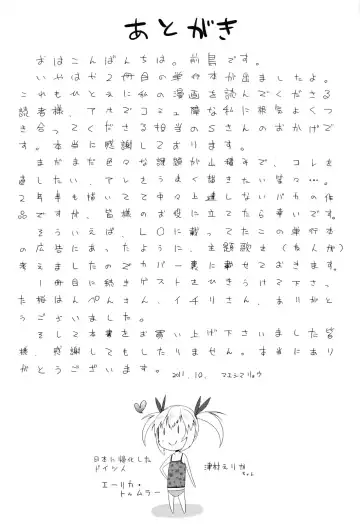 あとがき
おはこんばんちは。前島です。
いやはや2冊目の単行本が出ましたよ。
これもひとえに私の漫画を読んでくださる
読者様、アホでコミュ障な私に根気よくつ
き合ってくださる担当のSさんのおかげで
す。本当に感謝しております。
まだまだ色々な課題が山積みで、コレを
直したい、アレをうまく描きたい等々…。
2年半も描いてて中々上達しないバカの作
品ですが、皆様のお役に立てたら幸いです。
そういえば、LOに載ってたこの単行本
の広告にあったように、主題歌を(なんか)
考えましたのでカバー裏に載せておきます。
1冊目に続きゲストをひきうけて下さっ
た桜はんぺんさん、イチリさん、ありがと
うございました。
そして本書をお買い上げ下さいました皆
様、感謝してもしたりません。本当にあり
がとうございます。
2011.10. マエシマリョウ
日本に帰化した
ドイツ人
エーリカ・
トルムラー
津村えりか
ちゃん